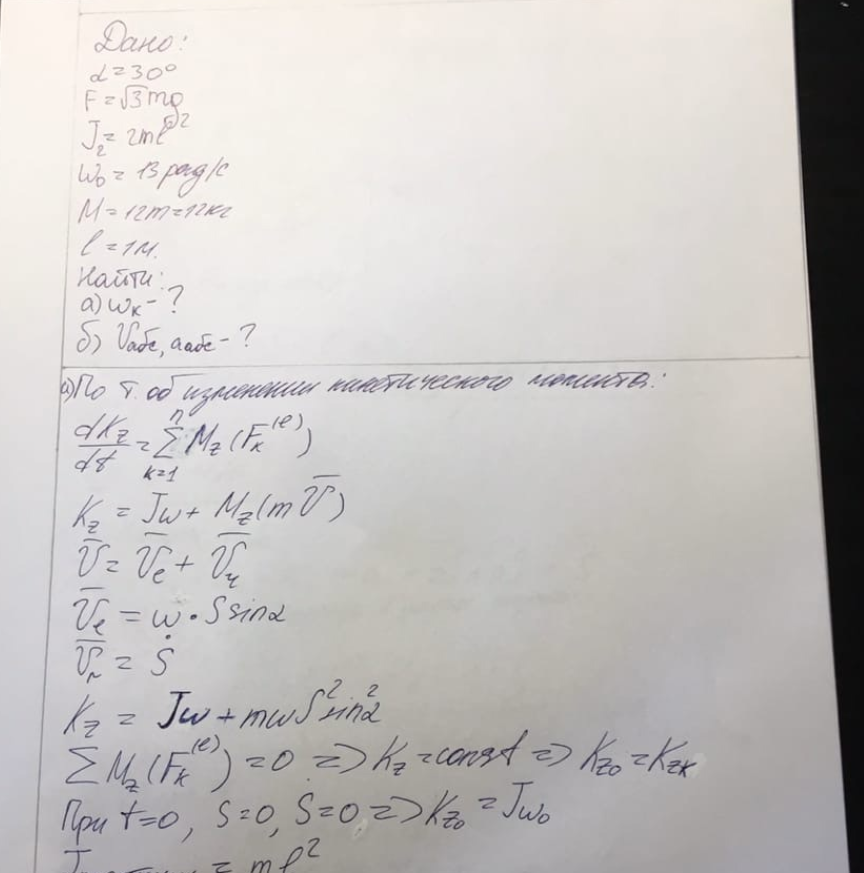 Дано:
α=30°
F=√3mg
J₂=2ml²
ω₀=13рад/с
M=12m=12кг
l=1м.
Найти:
а) ωк-?
б) Vабс, aабс-?
а) По т. об изменении кинетического момента:
dK_z/dt = Σ(k=1, n) M_z(F_k^(e))
K_z = Jω + M_z(mV̅)
V̅ = V̅e + V̅r
V̅e = ω·S sinα
V̅r = Ṡ
K_z = Jω + mωS²sin²α
ΣM_z(F_k^(e)) = 0 => K_z = const => K_z₀ = K_zк
При t=0, S=0, Ṡ=0 => K_z₀ = Jω₀
= ml²